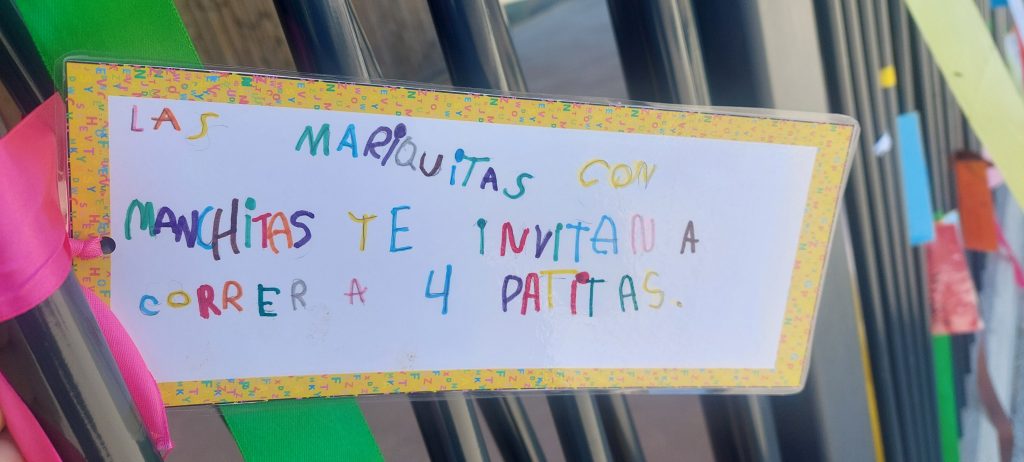 LAS MARiQUiTAS CON
MANCHiTAS TE iNViTAN A
CORRER A 4 PATiTAS.